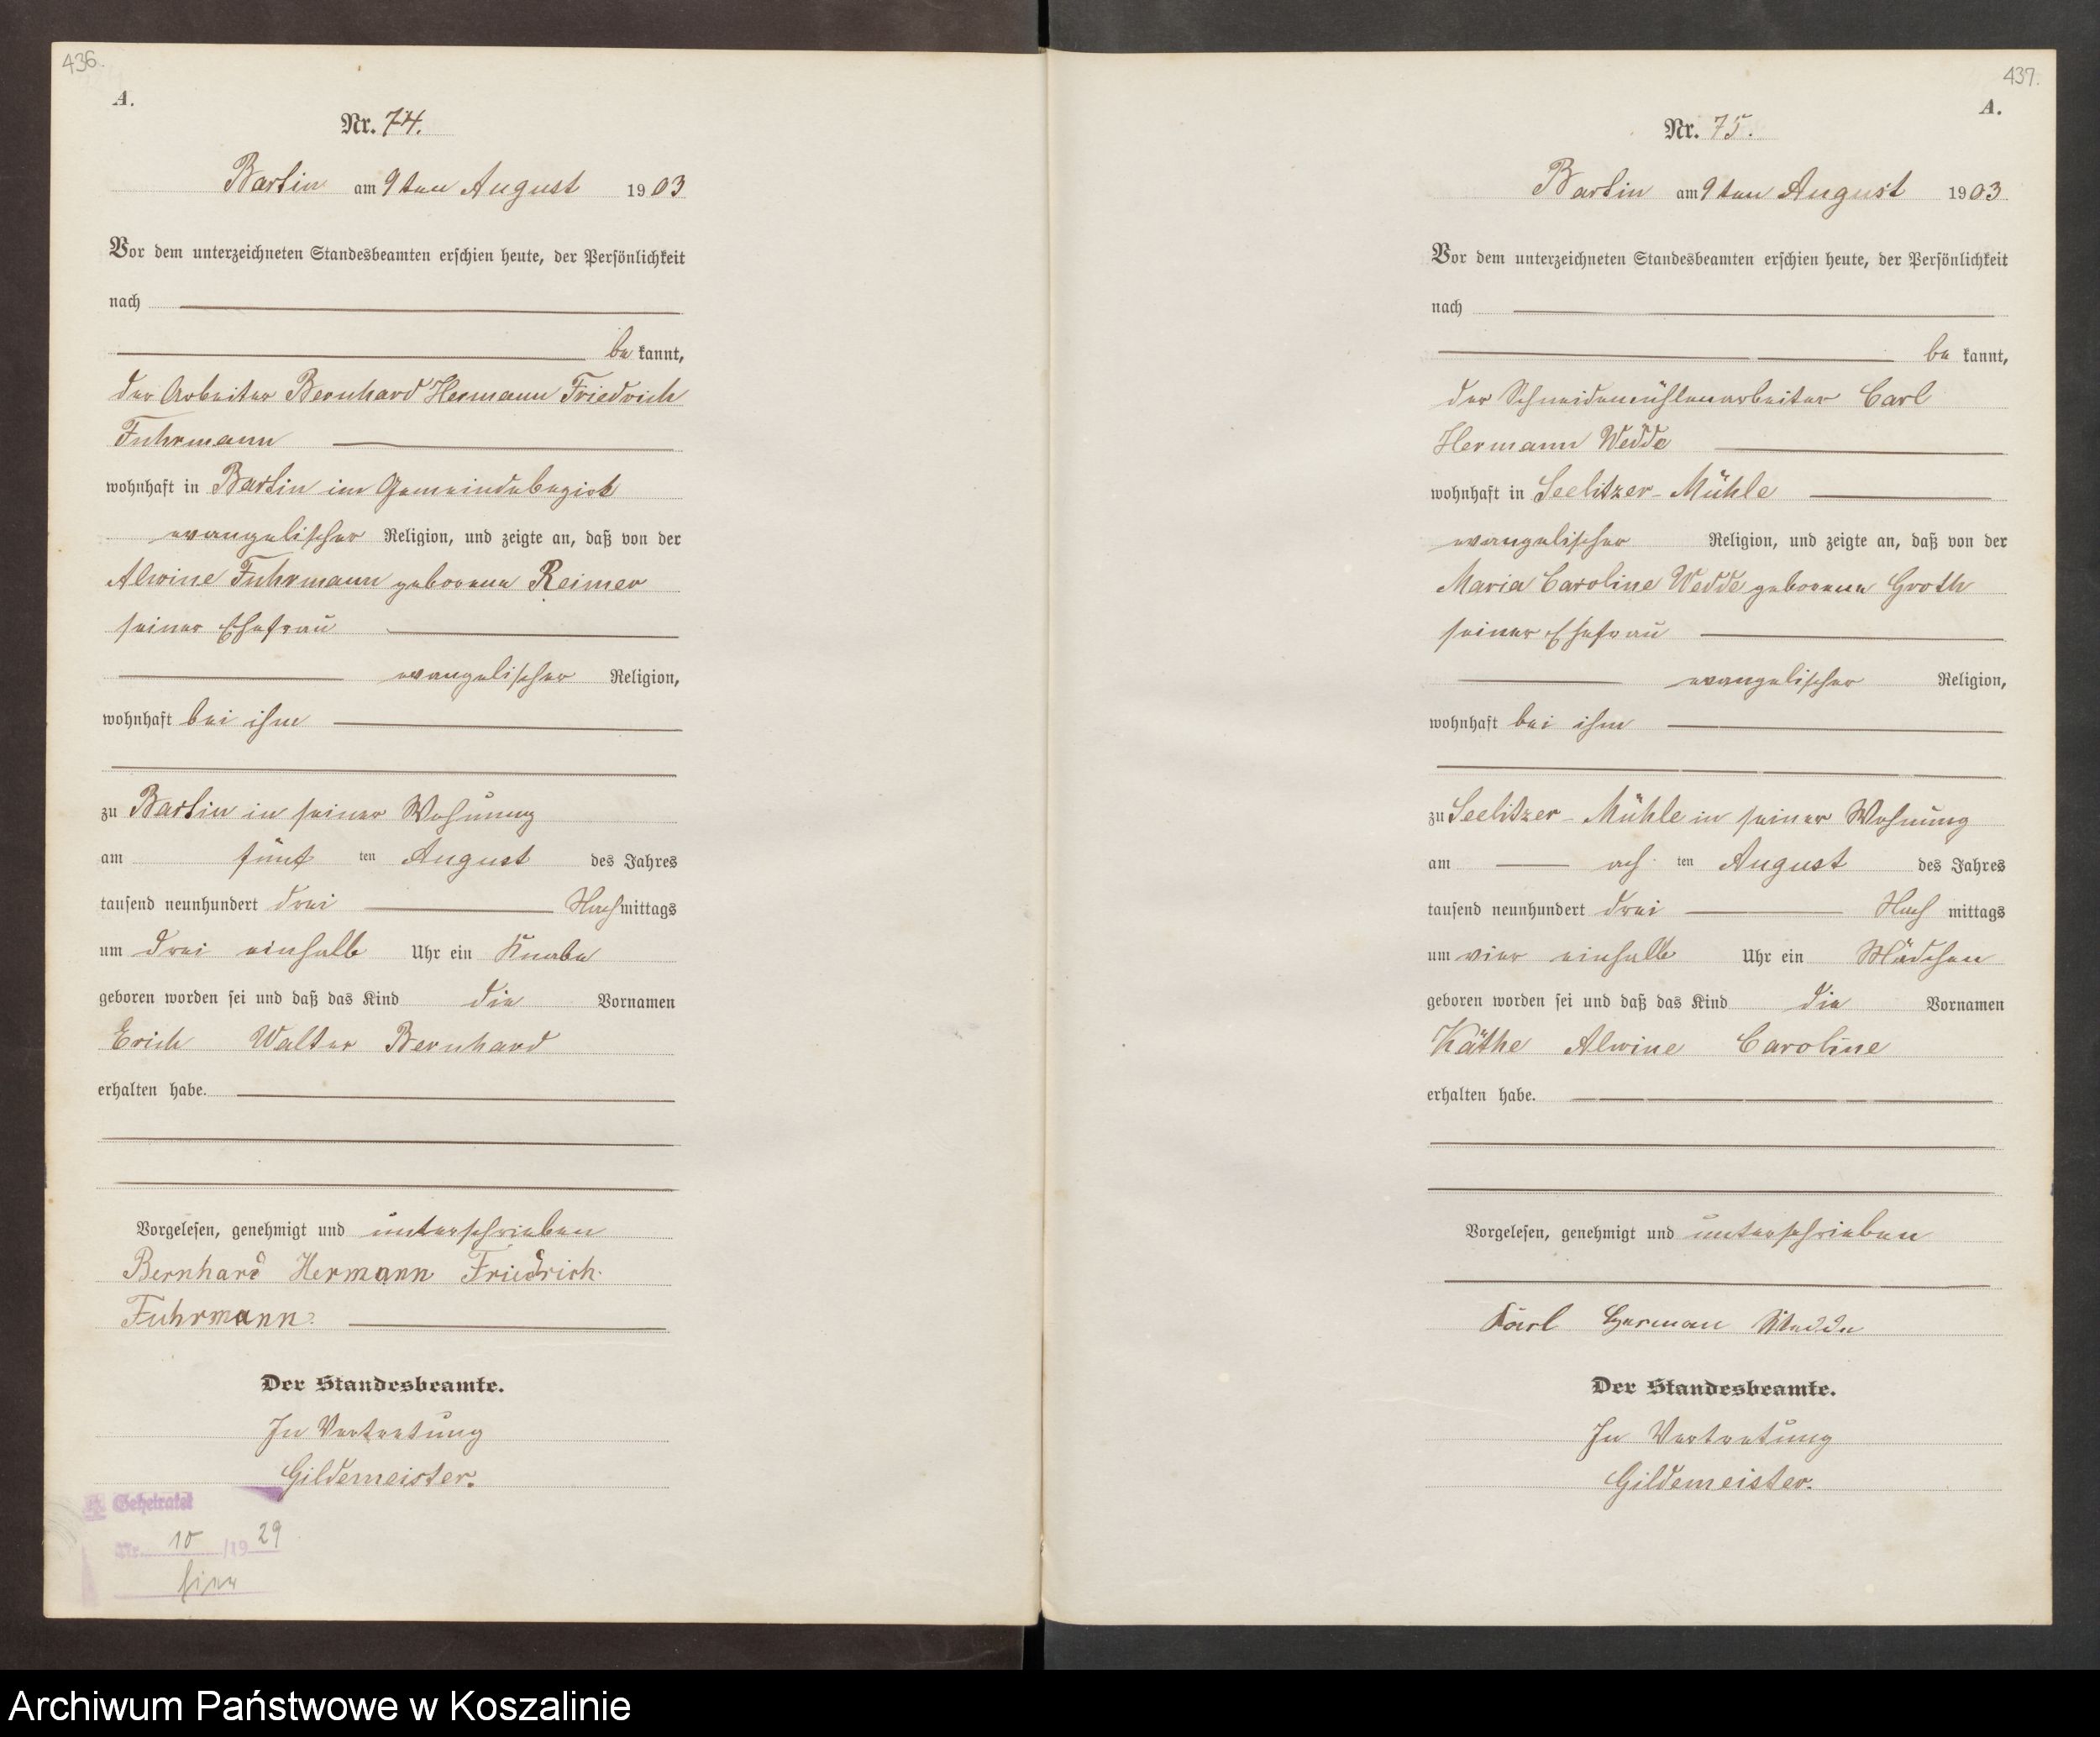 436.
A.
Nr. 74.
Bartin am 9ten August 1903
Vor dem unterzeichneten Standesbeamten erschien heute, der Persönlichkeit
nach
be kannt,
der Arbeiter Bernhard Hermann Friedrich
Fuhrmann
wohnhaft in Bartin im Gemeindebezirk
evangelischer Religion, und zeigte an, daß von der
Alwine Fuhrmann geborene Reimer
seiner Ehefrau
evangelischer Religion,
wohnhaft bei ihm
zu Bartin in seiner Wohnung
am fünf ten August des Jahres
tausend neunhundert drei Nachmittags
um drei einhalb Uhr ein Knabe
geboren worden sei und daß das Kind die Vornamen
Erich Walter Bernhard
erhalten habe.
Vorgelesen, genehmigt und unterschrieben
Bernhard Hermann Friedrich
Fuhrmann
Der Standesbeamte.
In Vertretung
Gildemeister.
Geheiratet
Nr. 10 /1929
437.
A.
Nr. 75.
Bartin am 9ten August 1903
Vor dem unterzeichneten Standesbeamten erschien heute, der Persönlichkeit
nach
be kannt,
der Schneidemühlenarbeiter Carl
Hermann Wedde
wohnhaft in Seelitzer-Mühle
evangelischer Religion, und zeigte an, daß von der
Maria Caroline Wedde geborene Groth
seiner Ehefrau
evangelischer Religion,
wohnhaft bei ihm
zu Seelitzer-Mühle in seiner Wohnung
am ach ten August des Jahres
tausend neunhundert drei Nach mittags
um vier einhalb Uhr ein Mädchen
geboren worden sei und daß das Kind die Vornamen
Käthe Alwine Caroline
erhalten habe.
Vorgelesen, genehmigt und unterschrieben
Karl Herman Wedde
Der Standesbeamte.
In Vertretung
Gildemeister.
Archiwum Państwowe w Koszalinie